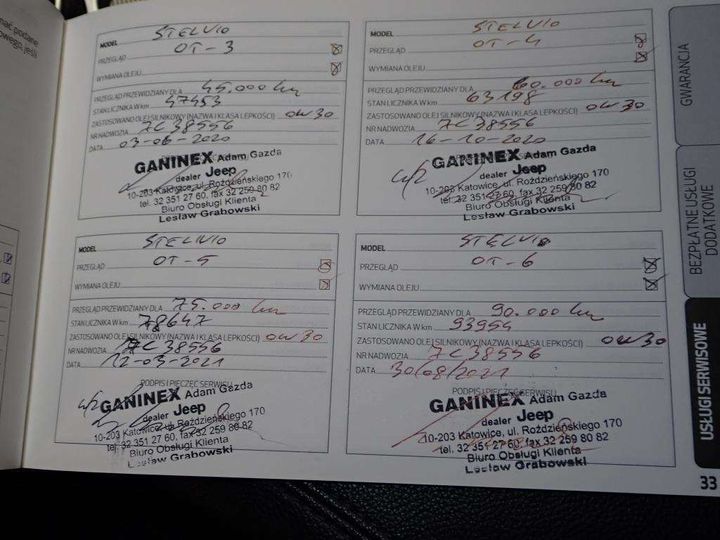 nać podane
owego, jeśli
MODEL STELVIO
PRZEGLĄD OT-3
WYMIANA OLEJU
PRZEGLĄD PRZEWIDZIANY DLA 45.000 km
STAN LICZNIKA W km 47453
ZASTOSOWANO OLEJ SILNIKOWY (NAZWA I KLASA LEPKOŚCI) 0W30
NR NADWOZIA 7C38556
DATA 03-06-2020
GANINEX Adam Gazda
dealer Jeep
10-203 Katowice, ul. Roździeńskiego 170
tel. 32 351 27 60, fax 32 259 80 82
Biuro Obsługi Klienta
Lesław Grabowski
MODEL STELVIO
PRZEGLĄD OT-4
WYMIANA OLEJU
PRZEGLĄD PRZEWIDZIANY DLA 60.000 km
STAN LICZNIKA W km 63198
ZASTOSOWANO OLEJ SILNIKOWY (NAZWA I KLASA LEPKOŚCI) 0W30
NR NADWOZIA 7C38556
DATA 16-10-2020
GANINEX Adam Gazda
dealer Jeep
10-203 Katowice, ul. Roździeńskiego 170
tel. 32 351 27 60, fax 32 259 80 82
Biuro Obsługi Klienta
Lesław Grabowski
MODEL STELVIO
PRZEGLĄD OT-5
WYMIANA OLEJU
PRZEGLĄD PRZEWIDZIANY DLA 75.000 km
STAN LICZNIKA W km 78647
ZASTOSOWANO OLEJ SILNIKOWY (NAZWA I KLASA LEPKOŚCI) 0W30
NR NADWOZIA 7C38556
DATA 12-03-2021
PODPIS I PIECZĘĆ SERWISU
GANINEX Adam Gazda
dealer Jeep
10-203 Katowice, ul. Roździeńskiego 170
tel. 32 351 27 60, fax 32 259 80 82
Biuro Obsługi Klienta
Lesław Grabowski
MODEL STELVIO
PRZEGLĄD OT-6
WYMIANA OLEJU
PRZEGLĄD PRZEWIDZIANY DLA 90.000 km
STAN LICZNIKA W km 93954
ZASTOSOWANO OLEJ SILNIKOWY (NAZWA I KLASA LEPKOŚCI) 0W30
NR NADWOZIA 7C38556
DATA 30/08/2021
PODPIS I PIECZĘĆ SERWISU
GANINEX Adam Gazda
dealer Jeep
10-203 Katowice, ul. Roździeńskiego 170
tel. 32 351 27 60, fax 32 259 80 82
Biuro Obsługi Klienta
Lesław Grabowski
GWARANCJA
BEZPŁATNE USŁUGI
DODATKOWE
USŁUGI SERWISOWE
33